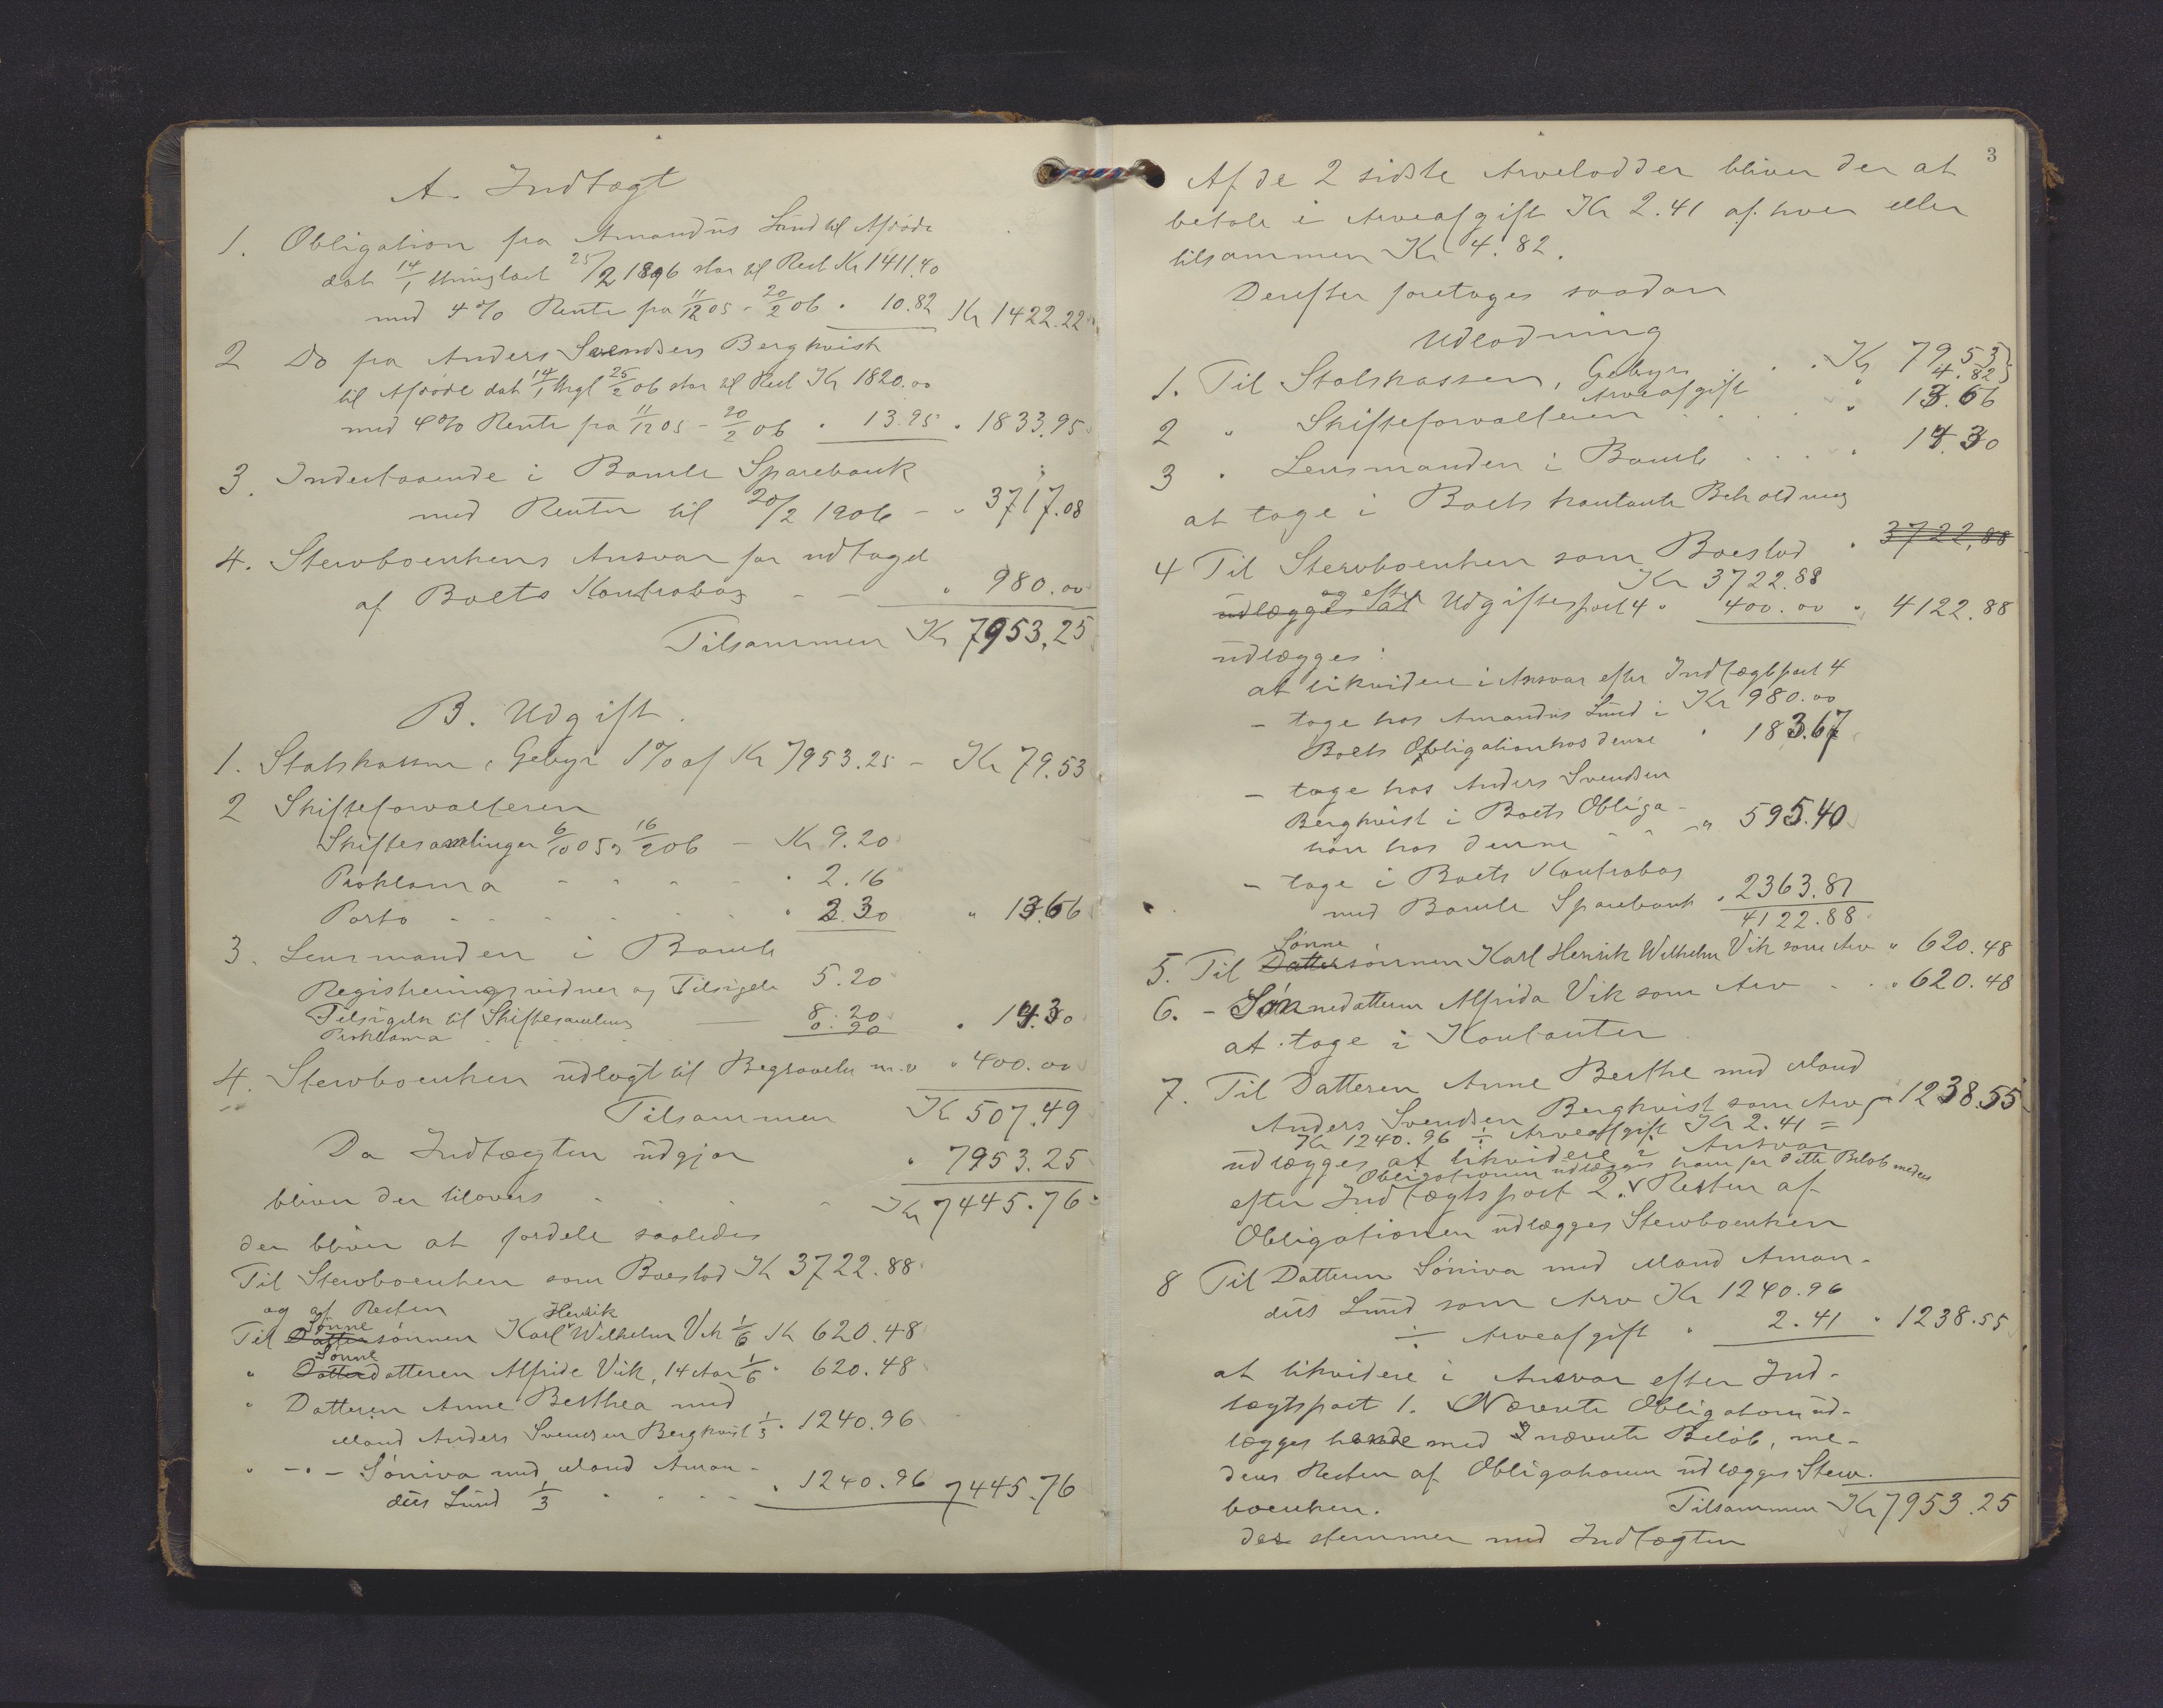 A. Indtægt
1. Obligation fra Amandus Lund til Afdøde
dat 14/1 thinglæst 25/2 1896 stor til Rest Kr 1411.40
med 4% Rente fra 11/12 05 - 20/2 06 " 10.82 Kr 1422.22
2 Do fra Anders Svendsen Berghvist
til Afdøde dat 14/1 thgl 25/2 06 stor til Rest Kr 1820.00
med 4% Rente fra 11/12 05 - 20/2 06 " 13.95 " 1833.95
3. Indestaaende i Bamle Sparebank
med Renter til 20/2 1906 - " 3717.08
4. Stervboenkens Ansvar for udtaget
af Boets Kontrabog - - " 980.00
Tilsammen Kr 7953.25
B. Udgift.
1. Statskassen, Gebyr 1% af Kr 7953.25 - Kr 79.53
2 Skifteforvalteren
Skiftesamlinger 6/10 05 og 16/2 06 - Kr 9.20
Proklama - - - - " 2.16
Porto - - - - - " 2.30 " 13.66
3. Lensmanden i Bamle
Registreringsvidner og Tilsigelse 5.20
Tilsigelse til Skiftesamling — 8.20
Proklama 0.90 " 14.30
4. Stervboenken udlagt til Begravelse m.v " 400.00
Tilsammen Kr 507.49
Da Indtægten udgjør " 7953.25
bliver der tilovers Kr 7445.76
der bliver at fordele saaledes
Til Stervboenken som Boeslod Kr 3722.88
og af Resten
Til Sønne Dattersønnen Karl Henrik Wilhelm Vik 1/6 Kr 620.48
" Sønne Datterdatteren Alfride Vik, 14 Aar 1/6 " 620.48
" Datteren Anne Berthea med
Mand Anders Svendsen Berghvist 1/3 " 1240.96
" - " - Søniva med Mand Aman-
dus Lund 1/3 " 1240.96 7445.76
3
Af de 2 sidste Arvelodder bliver der at
betale i Arveafgift Kr 2.41 af hver eller
tilsammen Kr 4.82.
Derefter foretages saadan
Udlodning
1. Til Statskassen, Gebyr . . Kr 79.53
Arveafgift " 4.82
2 " Skifteforvalteren . . . " 13.66
3 " Lensmanden i Bamle . . . " 14.30
at tage i Boets kontante Beholdning
4 Til Stervboenken som Boeslod " 3722.88
Kr 3722.88
udlægges at og efter Udgiftspost 4 " 400.00 " 4122.88
udlægges:
at likvidere i Ansvar efter Indtægtspost 4
Kr 980.00
- tage hos Amandus Lund i
Boets Obligation hos denne " 183.67
- tage hos Anders Svendsen
Berghvist i Boets Obliga-
tion hos denne - - " 595.40
- tage i Boets Kontrabog
med Bamle Sparebank " 2363.81
4122.88
5. Til Sønne Dattersønnen Karl Henrik Wilhelm Vik som Arv " 620.48
6. - Sønnedatteren Alfrida Vik som Arv . . " 620.48
at tage i Kontanter
7. Til Datteren Anne Berthe med Mand
Anders Svendsen Berghvist som Arv " 1238.55
Kr 1240.96 ÷ Arveafgift Kr 2.41 =
udlægges at likvidere i Ansvar
Obligationen udlægges ham for dette Beløb medens
efter Indtægtspost 2. Resten af
Obligationen udlægges Stervboenken
8 Til Datteren Søniva med Mand Aman-
dus Lund som Arv Kr 1240.96
÷ Arveafgift " 2.41 " 1238.55
at likvidere i Ansvar efter Ind-
tægtspost 1. Nævnte Obligation ud-
lægges hende med nævnte Beløb, me-
dens Resten af Obligationen udlægges Sterv-
boenken. Tilsammen Kr 7953.25
der stemmer med Indtægten